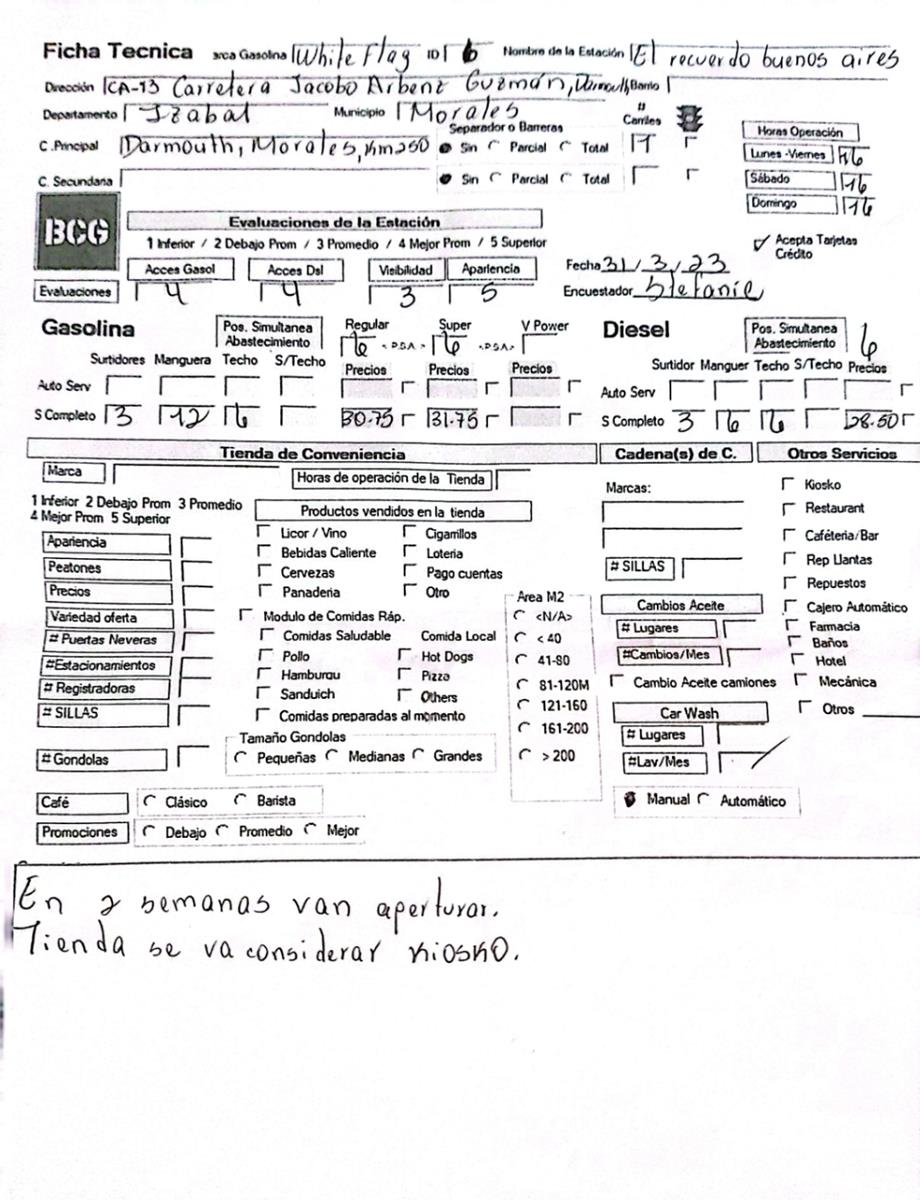 Ficha Tecnica arca Gasolina White Flag ID 6 Nombre de la Estación El recuerdo buenos aires
Dirección CA-13 Carretera Jacobo Arbenz Guzmán, Darmouth Barrio
Departamento Izabal Municipio Morales # Carriles
Separador o Barreras
C.Principal Darmouth, Morales, Km 250 Sin Parcial Total 1
C. Secundaria Sin Parcial Total
Horas Operación
Lunes -Viernes 16
Sábado 16
Domingo 16
BCG
Evaluaciones de la Estación
1 Inferior / 2 Debajo Prom / 3 Promedio / 4 Mejor Prom / 5 Superior
Acepta Tarjetas Crédito
Acces Gasol Acces Dsl Visibilidad Apariencia
Evaluaciones 4 4 3 5
Fecha 31/3/23
Encuestador Stefanie
Gasolina Pos. Simultanea Abastecimiento Regular 6 <.P.S.A.> Super 6 <.P.S.A.> V Power
Surtidores Manguera Techo S/Techo Precios Precios Precios
Auto Serv
S Completo 3 12 6 30.75 31.75
Diesel Pos. Simultanea Abastecimiento 6
Surtidor Manguer Techo S/Techo Precios
Auto Serv
S Completo 3 6 6 28.50
Tienda de Conveniencia
Marca Horas de operación de la Tienda
1 Inferior 2 Debajo Prom 3 Promedio
4 Mejor Prom 5 Superior
Apariencia
Peatones
Precios
Variedad oferta
# Puertas Neveras
#Estacionamientos
# Registradoras
# SILLAS
# Gondolas
Productos vendidos en la tienda
Licor / Vino Cigarrillos
Bebidas Caliente Loteria
Cervezas Pago cuentas
Panaderia Otro
Modulo de Comidas Ráp.
Comidas Saludable Comida Local
Pollo Hot Dogs
Hamburgu Pizza
Sanduich Others
Comidas preparadas al momento
Tamaño Gondolas
Pequeñas Medianas Grandes
Area M2
<N/A>
< 40
41-80
81-120M
121-160
161-200
> 200
Café Clásico Barista
Promociones Debajo Promedio Mejor
Cadena(s) de C.
Marcas:
# SILLAS
Cambios Aceite
# Lugares
#Cambios/Mes
Cambio Aceite camiones
Car Wash
# Lugares
#Lav/Mes
Manual Automático
Otros Servicios
Kiosko
Restaurant
Caféteria/Bar
Rep Llantas
Repuestos
Cajero Automático
Farmacia
Baños
Hotel
Mecánica
Otros
En 2 semanas van aperturar.
Tienda se va considerar Kiosko.